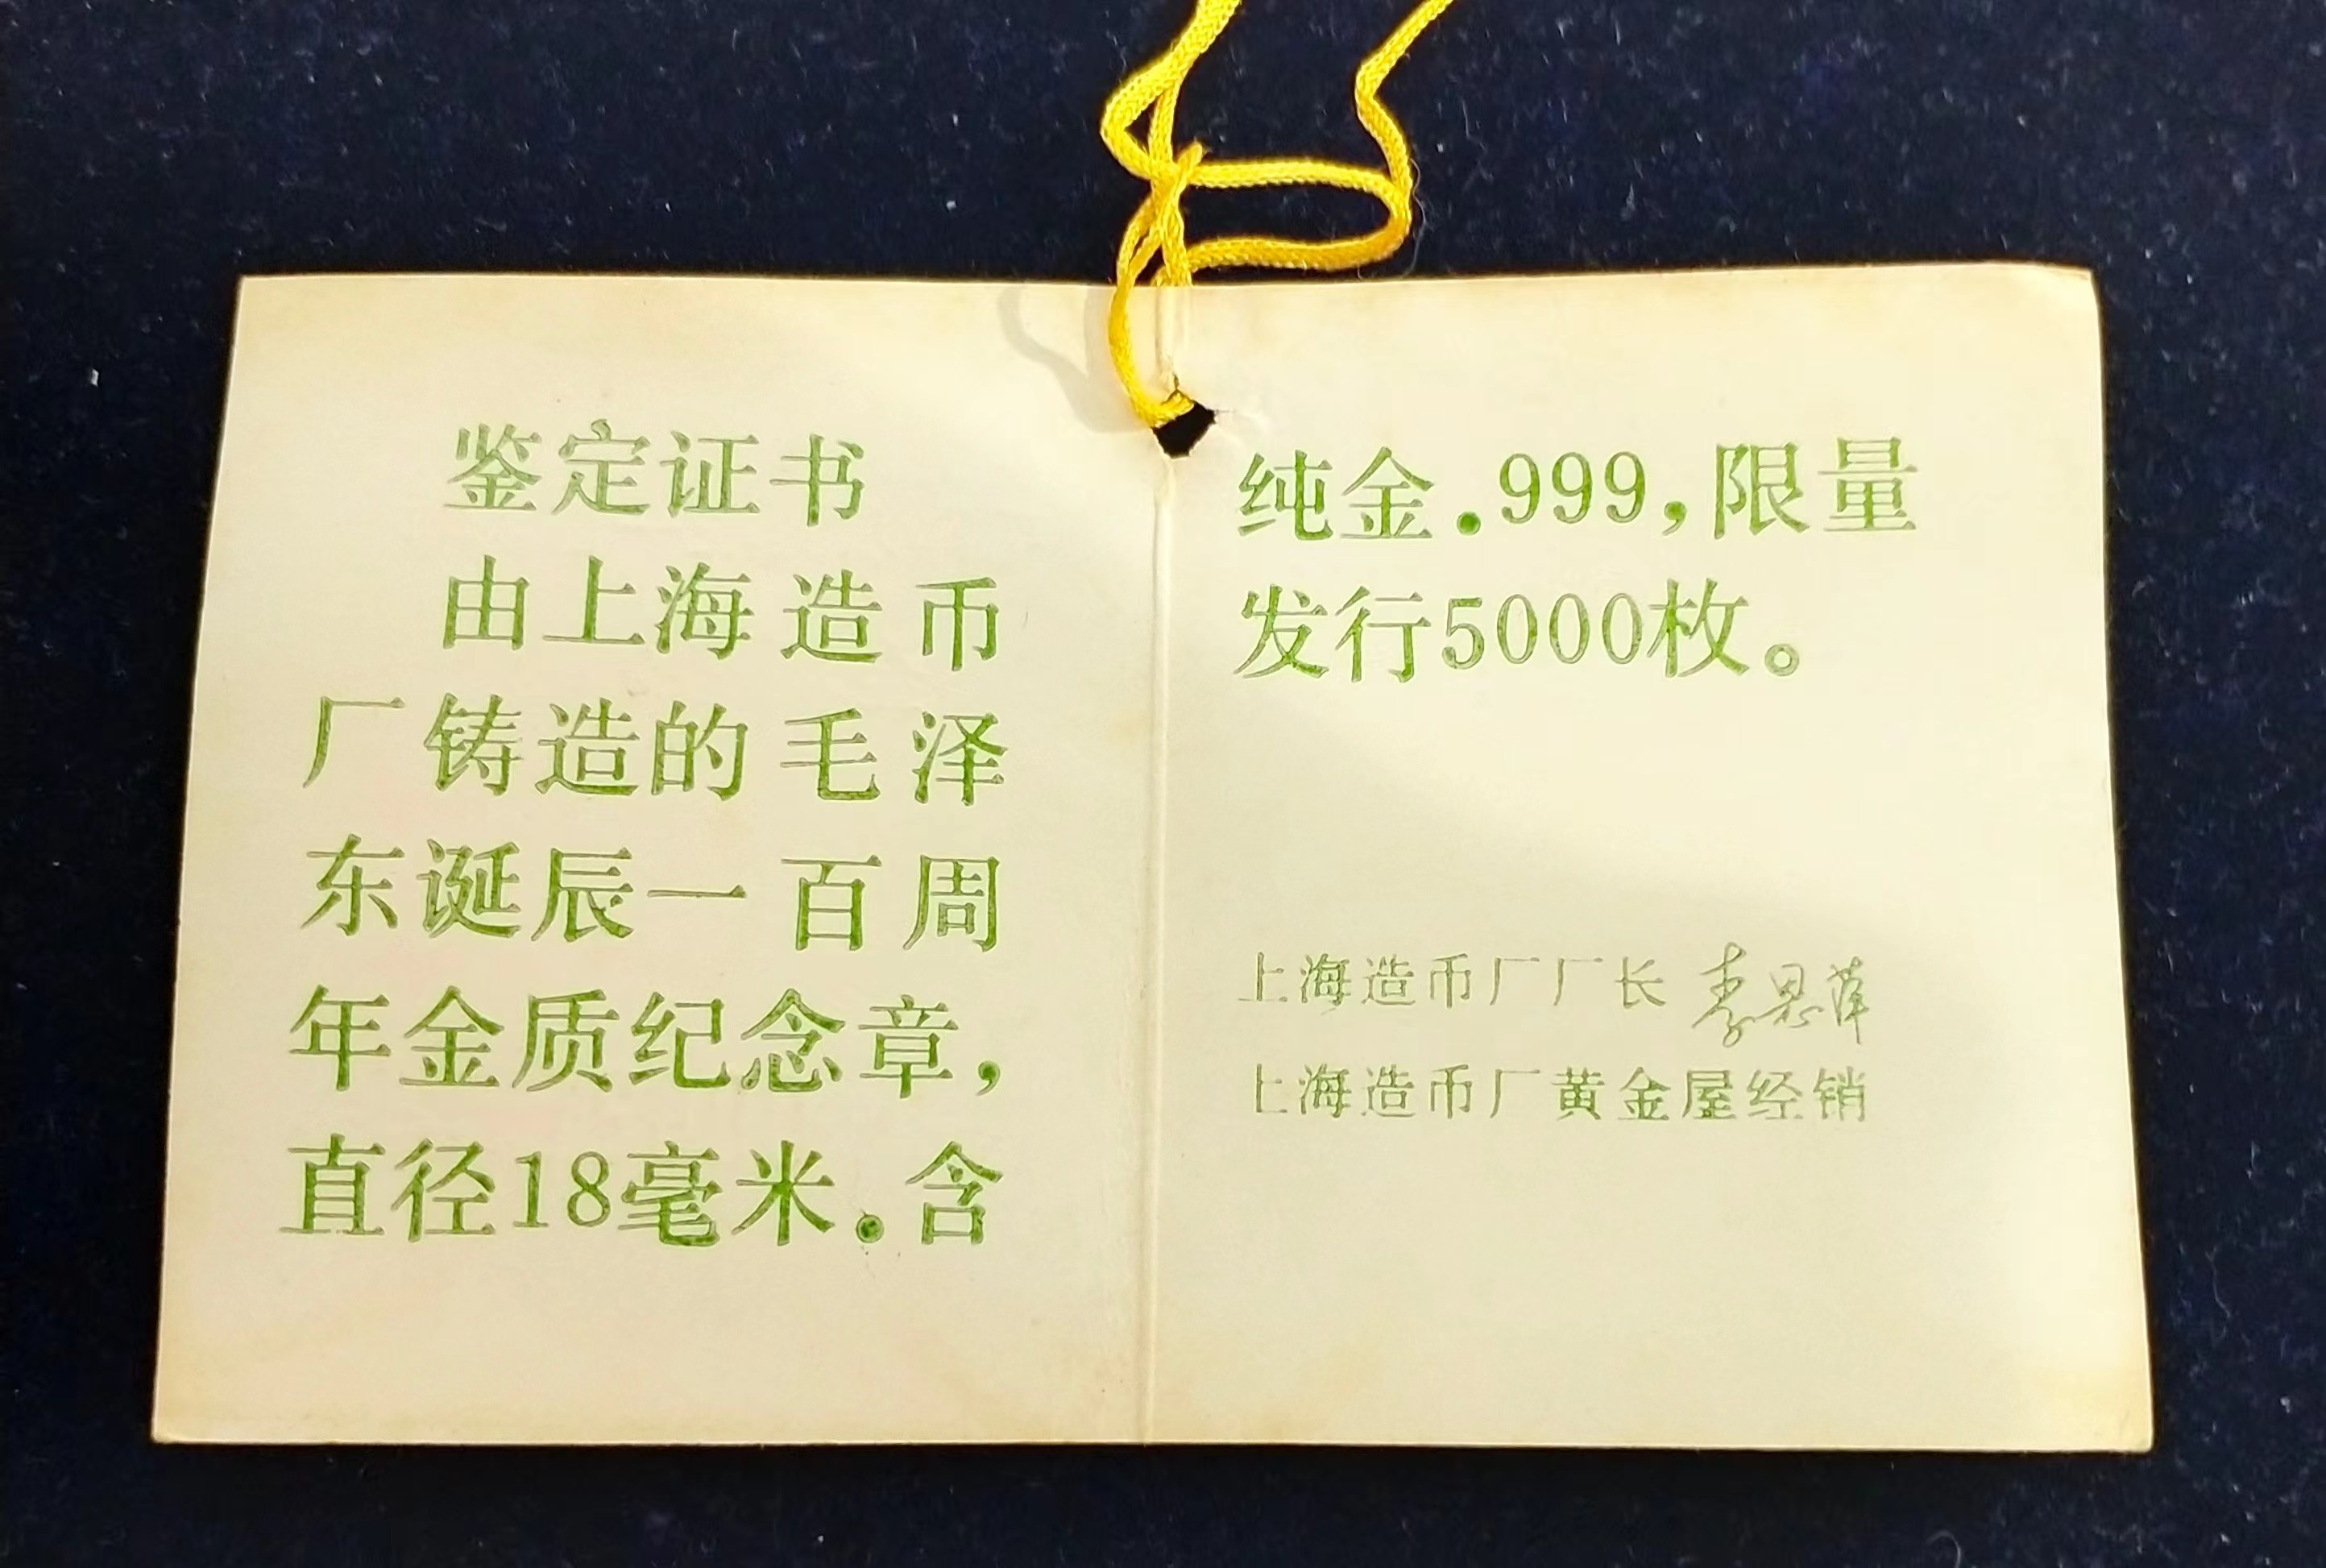 鉴定证书
由上海造币
厂铸造的毛泽
东诞辰一百周
年金质纪念章,
直径18毫米.含
纯金.999,限量
发行5000枚。
上海造币厂厂长
上海造币厂黄金屋经销